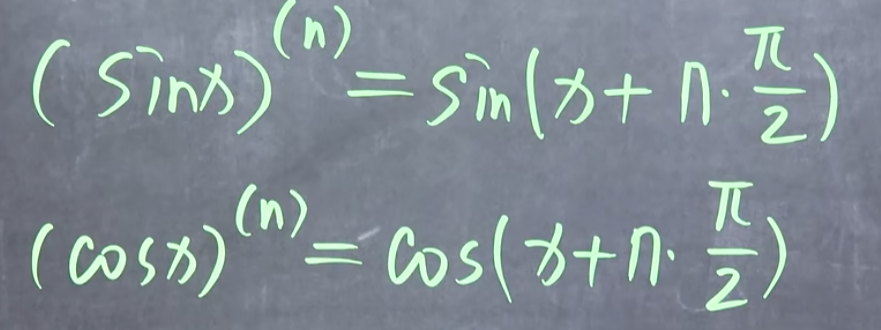 (sinx)^(n) = sin(x + n·π/2)
(cosx)^(n) = cos(x + n·π/2)